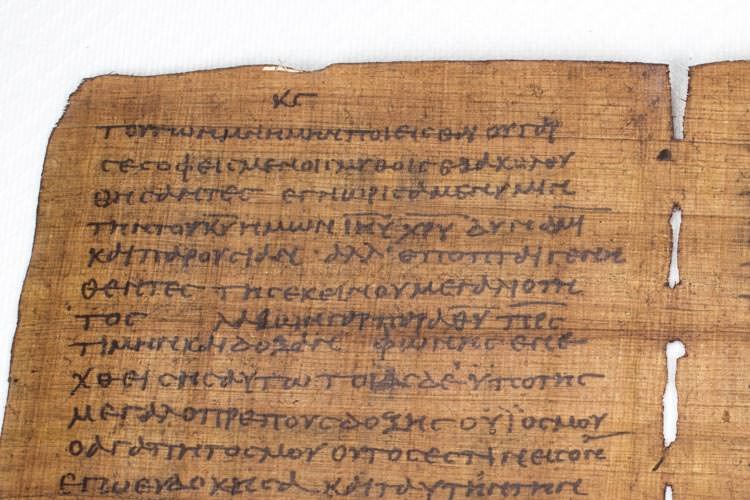 κς
τουτων μνημην ποιεισθαι ου γαρ
σεσοφεισμενοις μυθοις εξακολου
θησαντες εγνωρισαμεν υμιν
την του κυ ημων ιηυ χρυ δυναμι
και παρουσιαν αλλ εποπται γενη
θεντες της εκεινου μεγαλιοτη
τος λαβων γαρ παρα θυ πρς
τιμην και δοξαν φωνης ενε
χθεισης αυτω τοιασδε υπο της
μεγαλοπρεπους δοξης ο υιος μου
ο αγαπητος μου ουτος εστιν εις ον
εγω ευδοκησα και ταυτην την